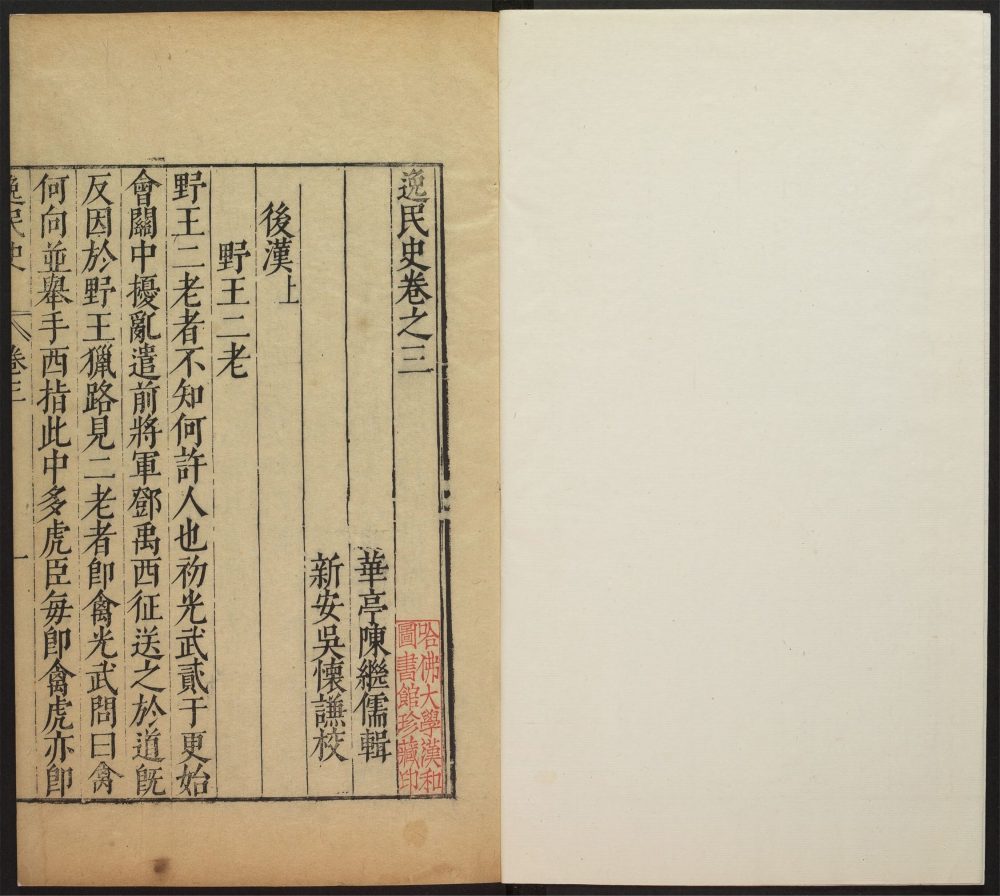 逸民史卷之三
華亭陳繼儒輯
新安吳懷謙校
後漢上
野王二老
野王二老者不知何許人也初光武貳于更始
會關中擾亂遣前將軍鄧禹西征送之於道旣
反因於野王獵路見二老者卽禽光武問曰禽
何向並舉手西指此中多虎臣每卽禽虎亦卽
逸民史
卷三
一
哈佛大學漢和
圖書館珍藏印